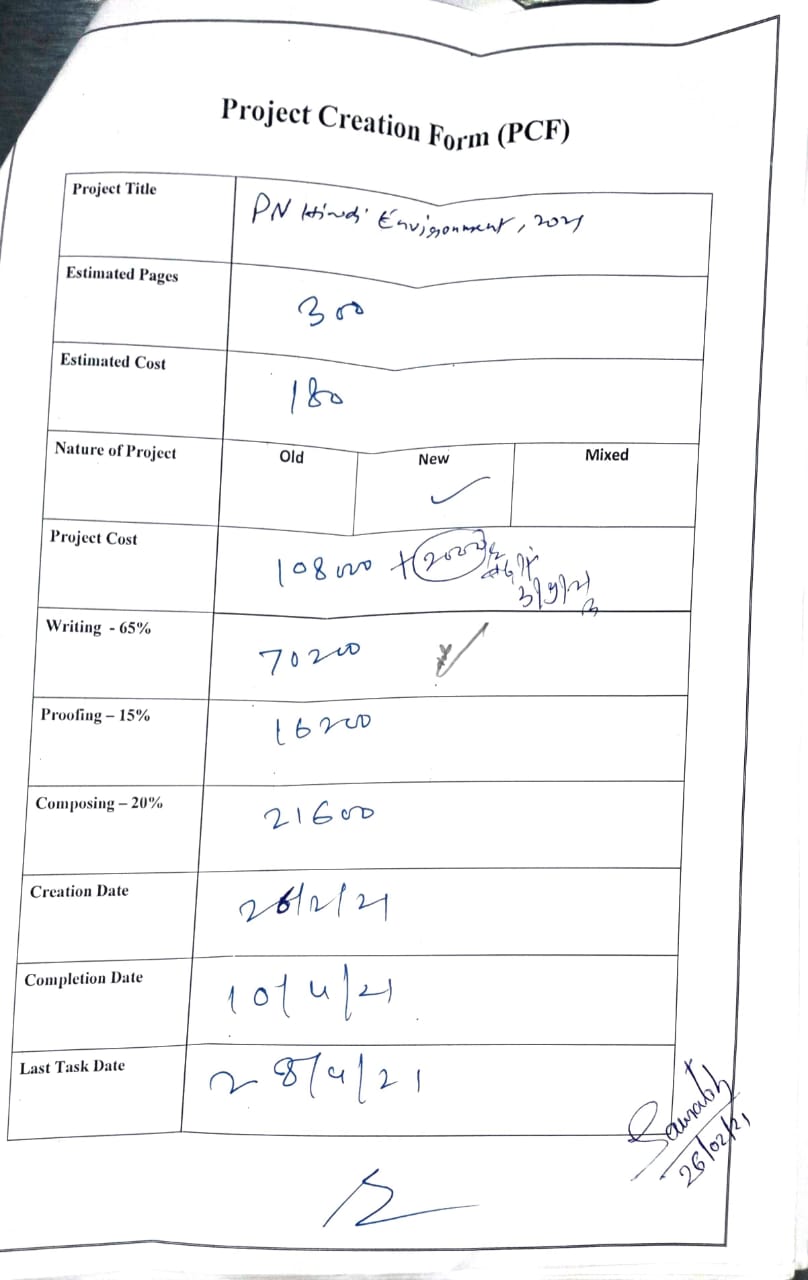 Project Creation Form (PCF)
Project Title PN Hindi Environment, 2021
Estimated Pages 300
Estimated Cost 180
Nature of Project Old New Mixed
Project Cost 108000 + 2000
Writing - 65% 70200
Proofing – 15% 16200
Composing – 20% 21600
Creation Date 26/2/21
Completion Date 10/4/21
Last Task Date 28/4/21
Saurabh
26/02/21